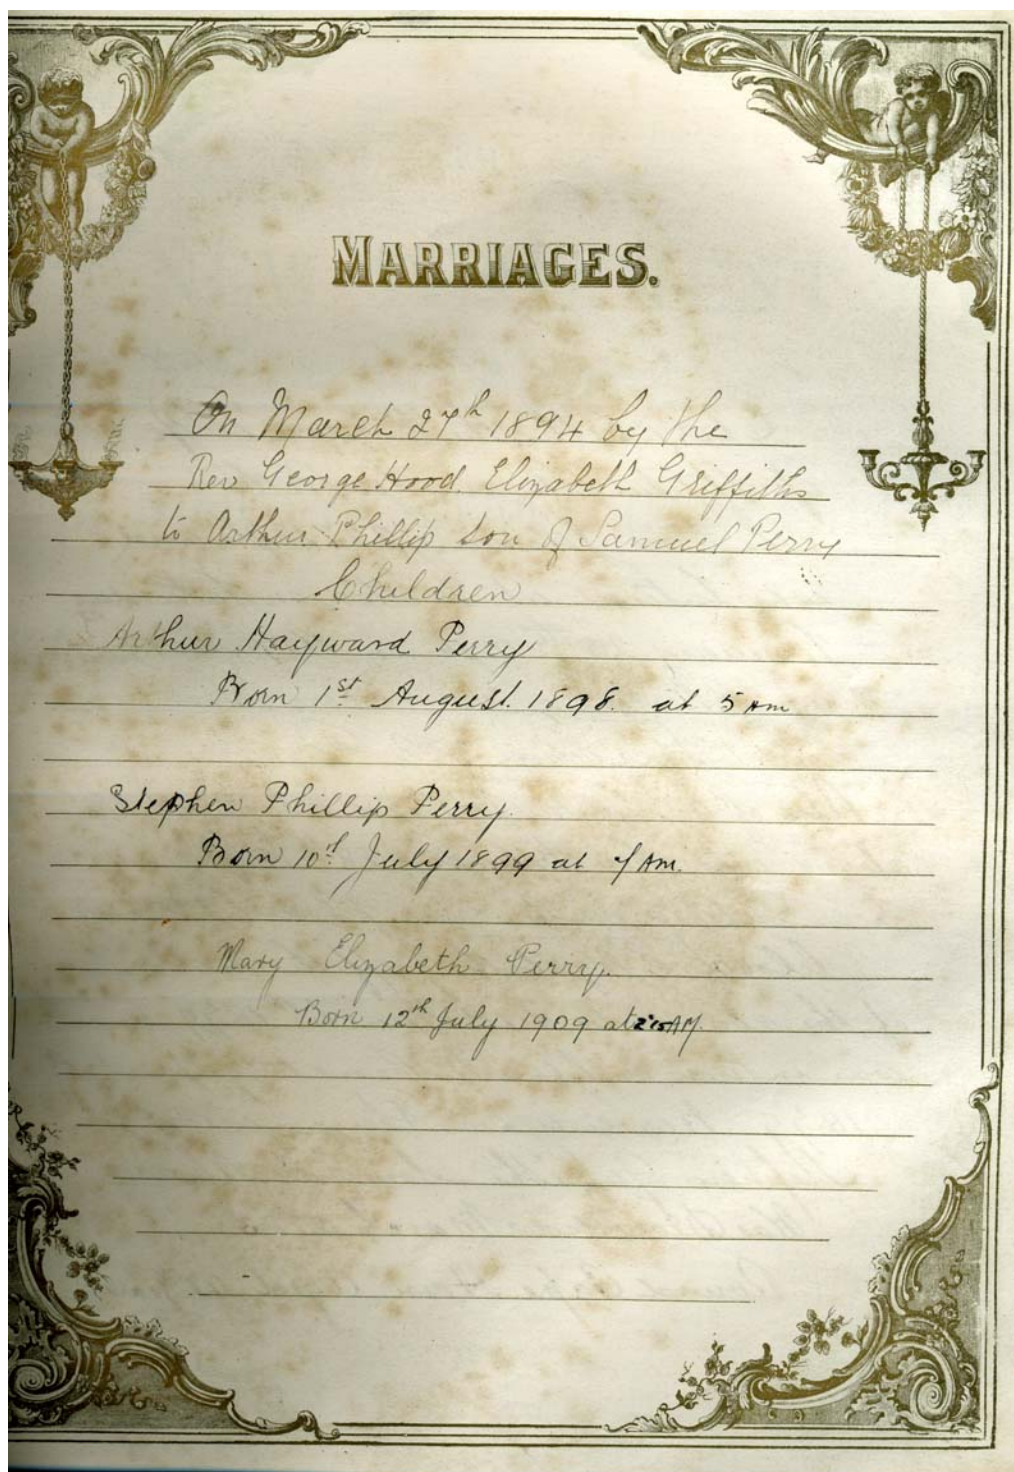 MARRIAGES.
On March 27th 1894 by the
Rev George Hood. Elizabeth Griffiths
to Arthur Phillip son of Samuel Perry
Children
Arthur Hayward Perry
Born 1st August. 1898. at 5 AM
Stephen Phillip Perry.
Born 10th July 1899 at AM.
Mary Elizabeth Perry.
Born 12th July 1909 at AM.